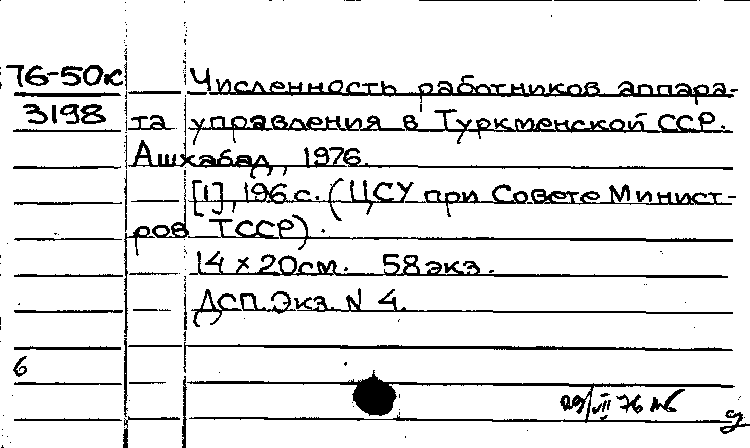 76-50к
3198
Численность работников аппара-
та управления в Туркменской ССР.
Ашхабад, 1976.
[1], 196 с. (ЦСУ при Совете Минист-
ров ТССР).
14 × 20см. 58экз.
ДСП. Экз. N 4.
6
29/VII 76